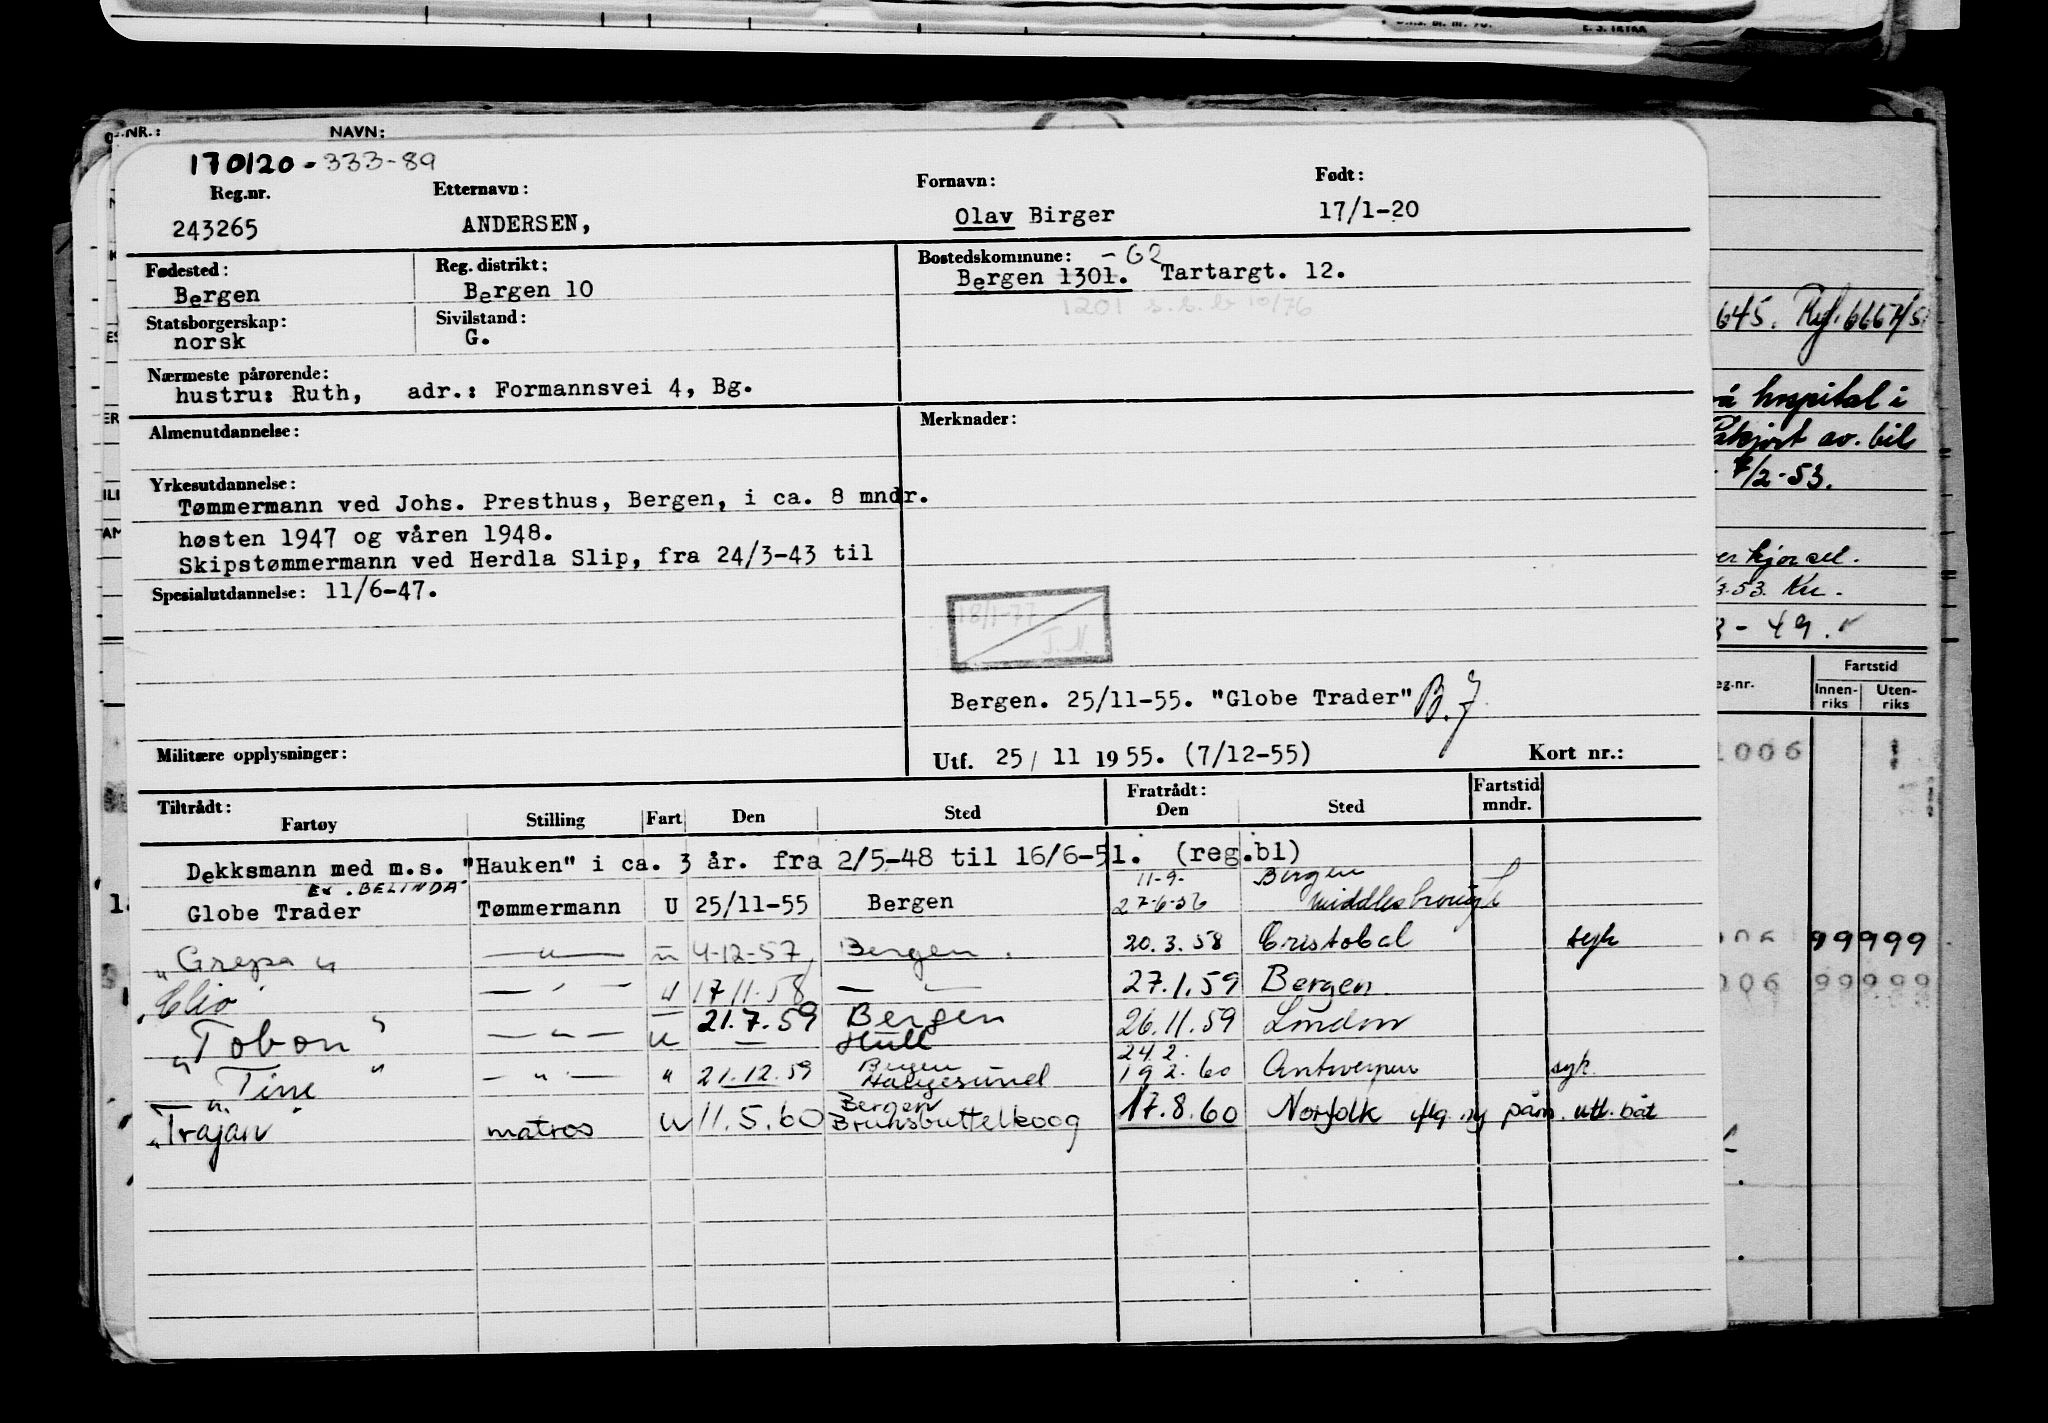 NR.: NAVN:
170120-333-89
Reg.nr. Etternavn: Fornavn: Født:
243265 ANDERSEN, Olav Birger 17/1-20
Fødested: Reg. distrikt: Bostedskommune: -G2
Bergen Bergen 10 Bergen 1301. Tartargt. 12.
1201 s.s.b 10/76
Statsborgerskap: Sivilstand:
norsk G.
Nærmeste pårørende:
hustru: Ruth, adr.: Formannsvei 4, Bg.
Almenutdannelse: Merknader:
Yrkesutdannelse:
Tømmermann ved Johs. Presthus, Bergen, i ca. 8 mndr.
høsten 1947 og våren 1948.
Skipstømmermann ved Herdla Slip, fra 24/3-43 til
Spesialutdannelse: 11/6-47.
18/1-77
J.N.
Bergen. 25/11-55. "Globe Trader" B.J
Militære opplysninger: Utf. 25/ 11 1955. (7/12-55) Kort nr.:
Tiltrådt: Fratrådt: Fartstid
Fartøy Stilling Fart Den Sted Den Sted mndr.
Dekksmann med m.s. "Hauken" i ca. 3 år. fra 2/5-48 til 16/6-51. (reg.bl)
Ex. BELINDA 11-9- Bergen
Globe Trader Tømmermann U 25/11-55 Bergen 27-6-56 Middlesbrough
"Grepa" —"— u 4-12-57 Bergen. 20.3.58 Cristobal syk
"Clio" — " — u 17 11.58 — " — 27.1.59 Bergen.
"Tobon" — " — u 21.7.59 Bergen 26.11.59 London
Hull
24.2.
"Tine" — " — " 21.12.59 Bergen 19 2.60 Antwerpen syk
Haugesund
Bergen
"Trajan" matros U 11.5.60 Brunsbuttelkoog 17.8.60 Norfolk påm. utl. båt
645. 6667/5
hospital i
Påkjørt av. bil
7/2-53.
3.53. Ku.
3-49.
Fartstid
eg.nr. Innen-riks Uten-riks
1006 1
99999
006 99999